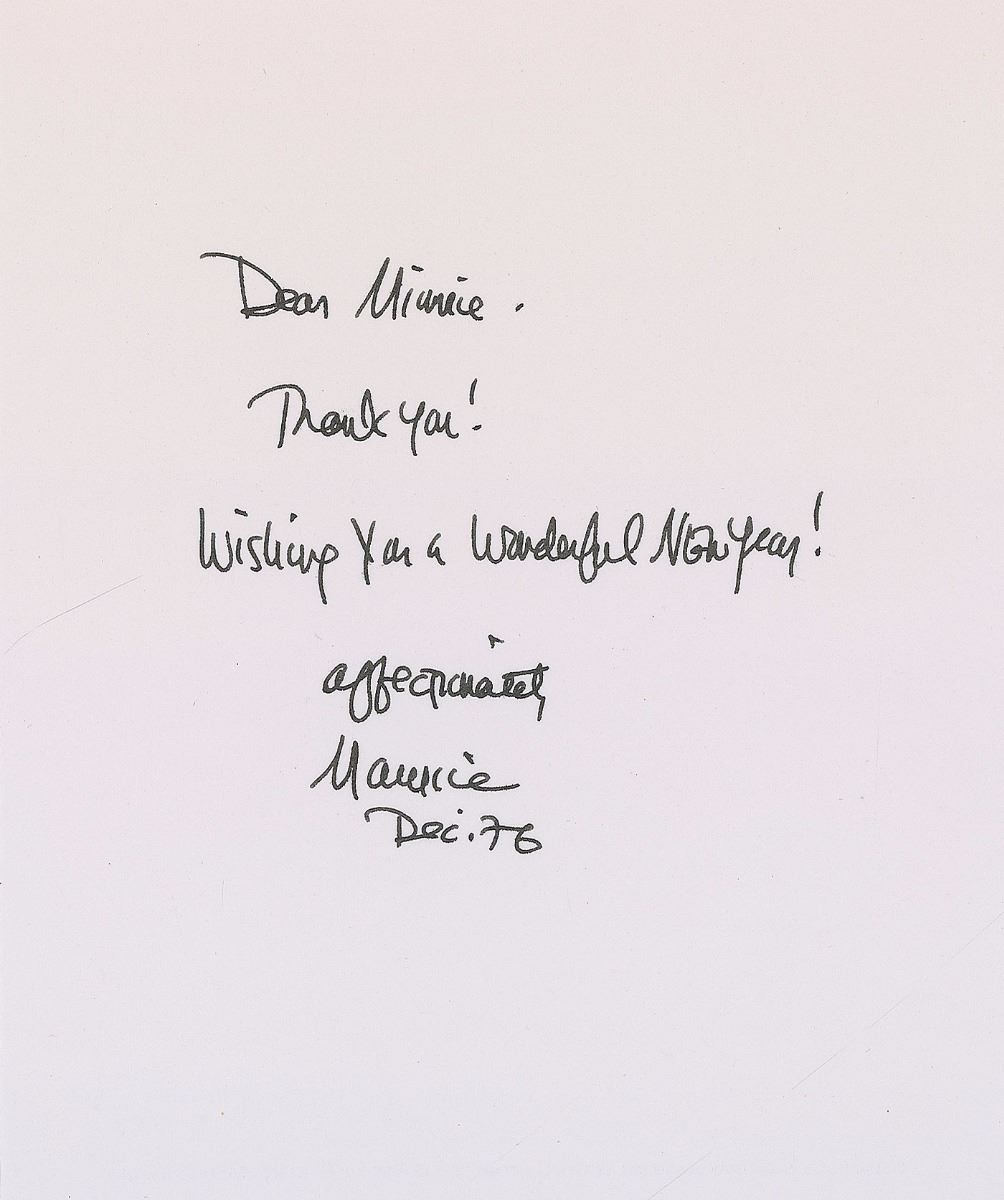 Dear Minnie.
Thank you!
Wishing You a Wonderful New Year!
affectionately
Maurice
Dec. 76